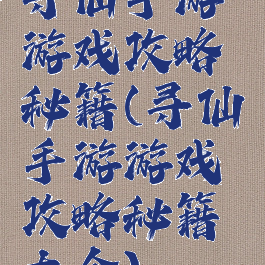 寻仙手游
游戏攻略
秘籍(寻仙
手游游戏
攻略秘籍
大全)